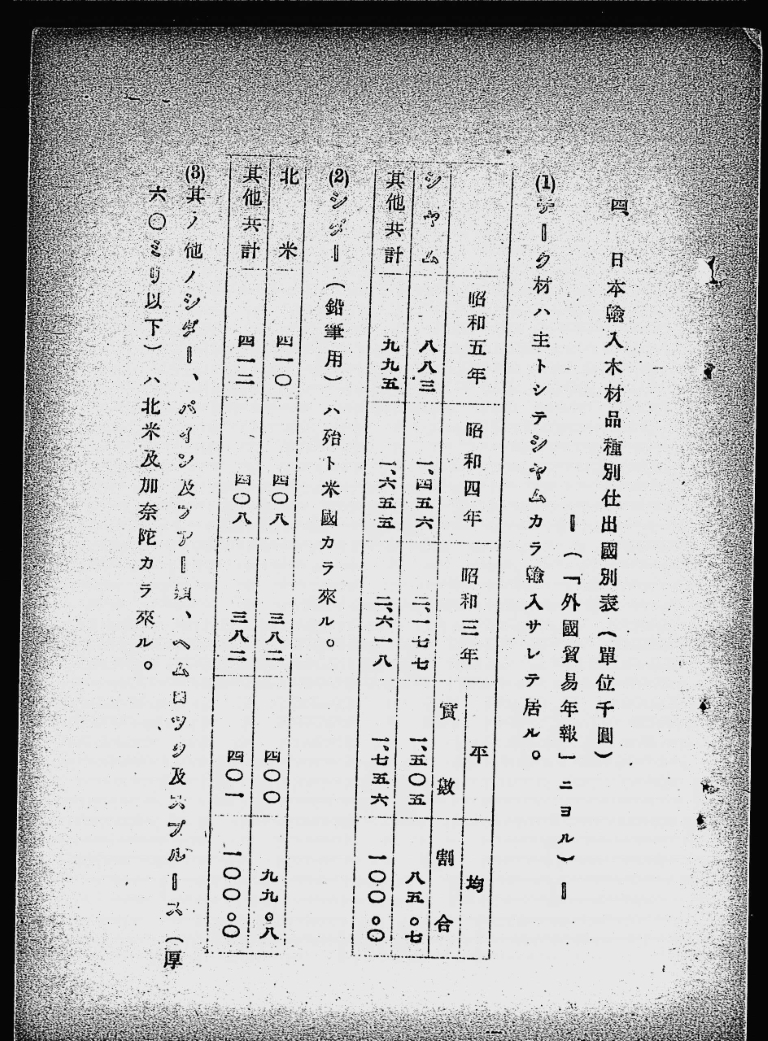 四　日本輸入木材品種別仕出國別表（單位千圓）
―（「外國貿易年報」ニヨル）―
(1) チーク材ハ主トシテシヤムカラ輸入サレテ居ル。
昭和五年　昭和四年　昭和三年　平均
實數　割合
シヤム　八八三　一、四五六　二、一七七　一、五〇五　八五。七
其他共計　九九五　一、六五五　二、六一八　一、七五六　一〇〇。〇
(2) シダー（鉛筆用）ハ殆ト米國カラ來ル。
北米　四一〇　四〇八　三八二　四〇〇　九九。八
其他共計　四一二　四〇八　三八二　四〇一　一〇〇。〇
(3) 其ノ他ノシダー、パイン及フアー類、ヘムロツク及スプルース（厚
六〇ミリ以下）ハ北米及加奈陀カラ來ル。